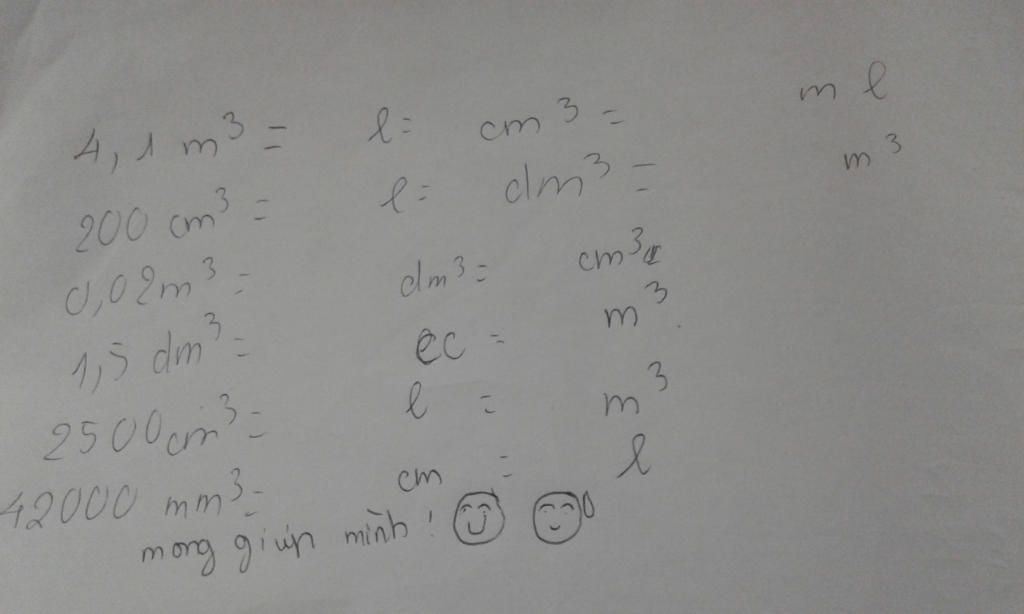 4,1 m³ = l = cm³ = ml
200 cm³ = l = dm³ = m³
0,02m³ = dm³ = cm³
1,5 dm³ = cc = m³.
2500cm³ = l = m³
42000 mm³ = cm = l
mong giúp mình!